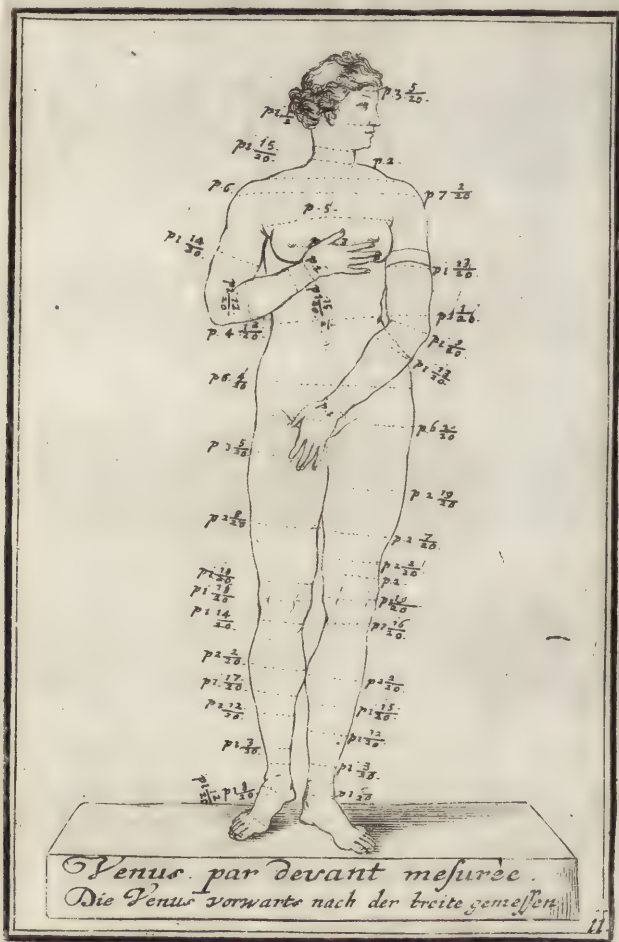 p. 3 5/20.
p 1 1/2
p 1 15/20.
p. 2
p. 6
p 7 2/20
p. 5.
p 1 14/20
p 2
p 1 13/20
p. 4 12/20
p 1 9/20
p 1 13/20.
p 6 4/20
p. 6 2/20
p. 3 5/20
p 2 19/20
p 2 8/20
p 2 7/20
p 2 2/20
p 2
p 1 18/20
p 1 14/20
p 1 16/20
p 2 2/20
p 2 2/20
p 1 17/20
p 1 15/20
p 1 12/20
p 1 12/20
p 1 3/20
p 1 3/20
Venus par devant meſurée.
Die Venus vorwarts nach der breite gemeſſen
11.